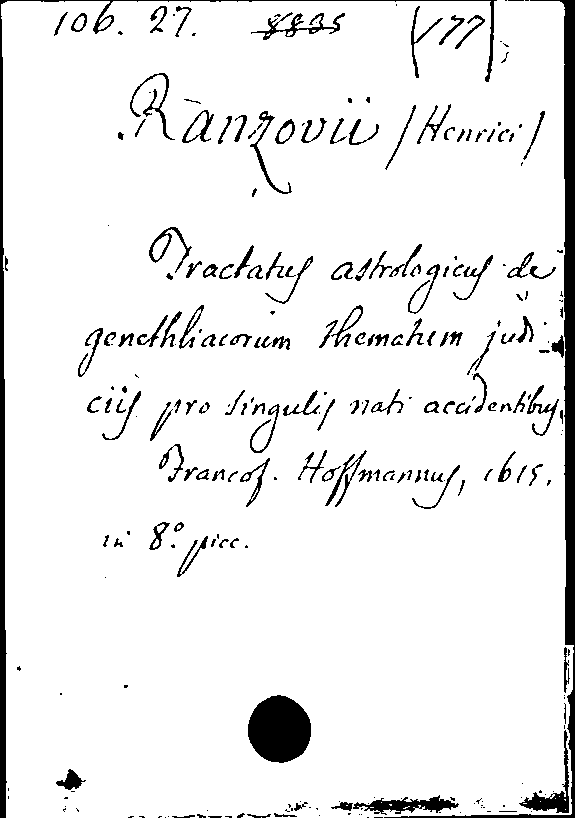 106. 27. 8835 (V77)
Ranzovii (Henrici)
Tractatus astrologicus de
genethliacorum thematum judi-
ciis pro singulis nati accidentibus
Francof. Hoffmannus, 1615.
in 8.º picc.